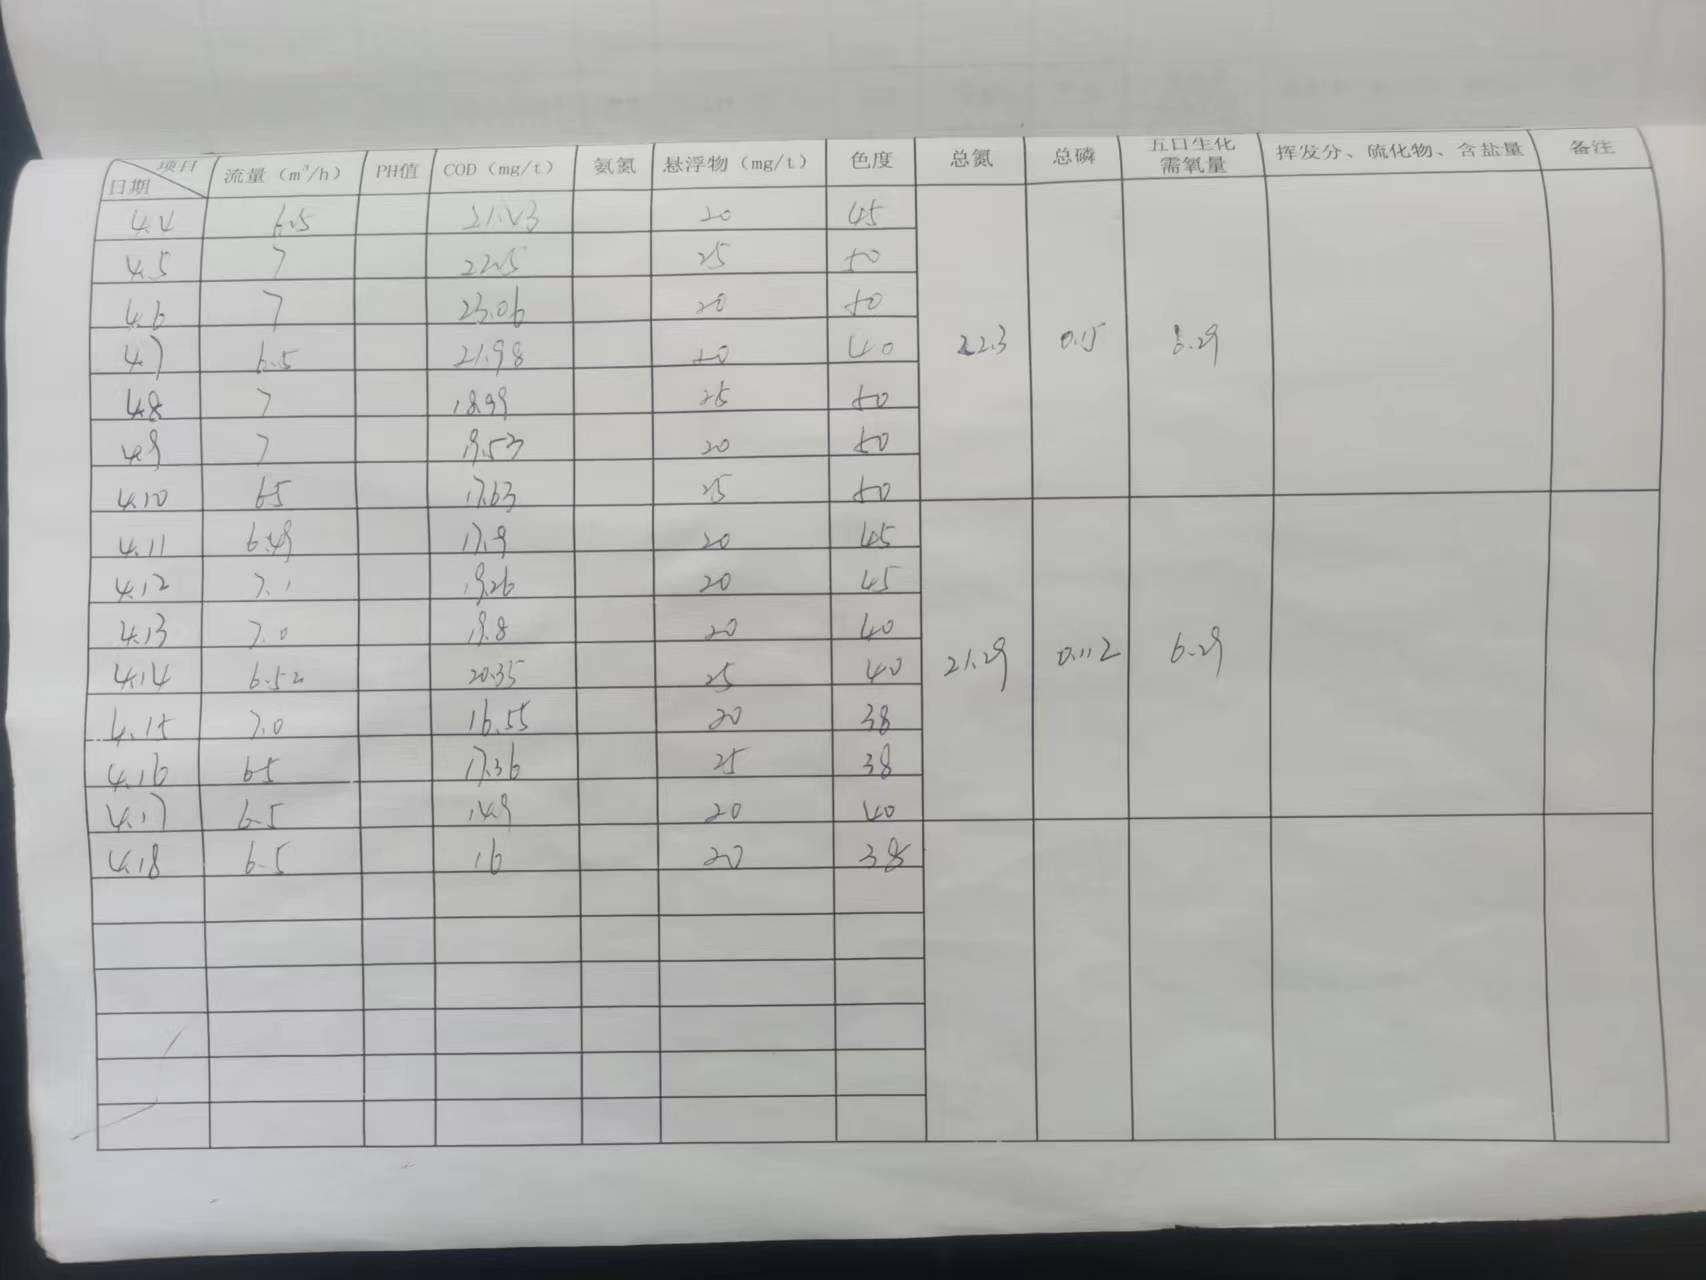 项目 日期 流量（m³/h） PH值 COD（mg/t） 氨氮 悬浮物（mg/t） 色度 总氮 总磷 五日生化需氧量 挥发分、硫化物、含盐量 备注
4.4 6.5 21.43 20 45
4.5 7 22.5 25 50
4.6 7 23.06 20 50
4.7 6.5 21.98 20 40 22.3 0.15 6.29
4.8 7 18.99 25 50
4.9 7 19.53 20 50
4.10 6.5 17.63 25 50
4.11 6.49 17.9 20 45
4.12 7.1 19.26 20 45
4.13 7.0 19.8 20 40
4.14 6.52 20.35 25 40 21.29 0.112 6.29
4.15 7.0 16.55 20 38
4.16 6.5 17.36 25 38
4.17 6.5 14.9 20 40
4.18 6.5 16 20 38